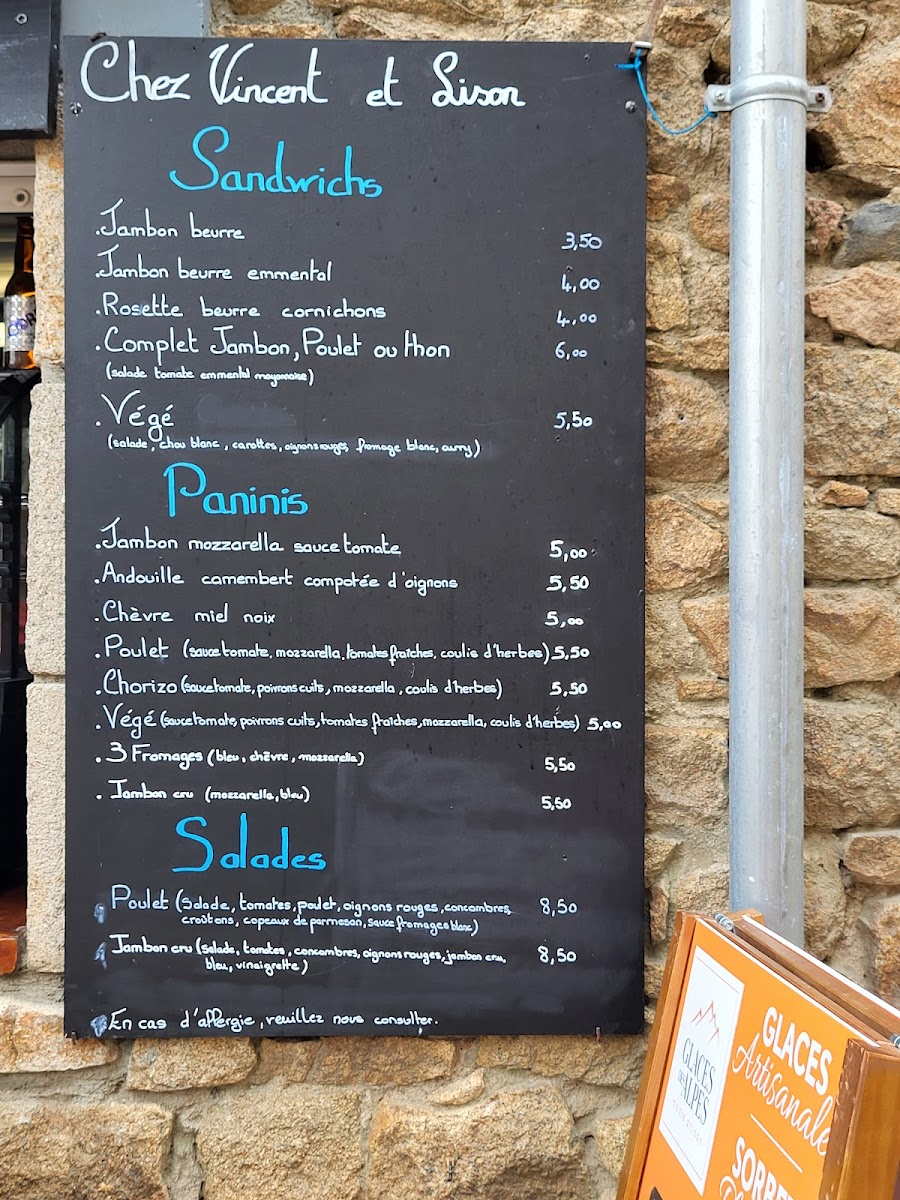 Chez Vincent et Lison
Sandwichs
.Jambon beurre 3,50
.Jambon beurre emmental 4,00
.Rosette beurre cornichons 4,00
.Complet Jambon, Poulet ou thon 6,00
(salade tomate emmental mayonnaise)
.Végé 5,50
(salade, chou blanc, carottes, oignons rouges, fromage blanc, curry)
Paninis
.Jambon mozzarella sauce tomate 5,00
.Andouille camembert compotée d'oignons 5,50
.Chèvre miel noix 5,00
.Poulet (sauce tomate, mozzarella, tomates fraîches, coulis d'herbes) 5,50
.Chorizo (sauce tomate, poivrons cuits, mozzarella, coulis d'herbes) 5,50
.Végé (sauce tomate, poivrons cuits, tomates fraîches, mozzarella, coulis d'herbes) 5,00
.3 Fromages (bleu, chèvre, mozzarella) 5,50
.Jambon cru (mozzarella, bleu) 5,50
Salades
Poulet (Salade, tomates, poulet, oignons rouges, concombres, 8,50
croûtons, copeaux de parmesan, sauce fromages blanc)
Jambon cru (salade, tomates, concombres, oignons rouges, jambon cru, 8,50
bleu, vinaigrette)
En cas d'allergie, veuillez nous consulter.
GLACES
DES ALPES
GLACES
Artisanale
SORBE